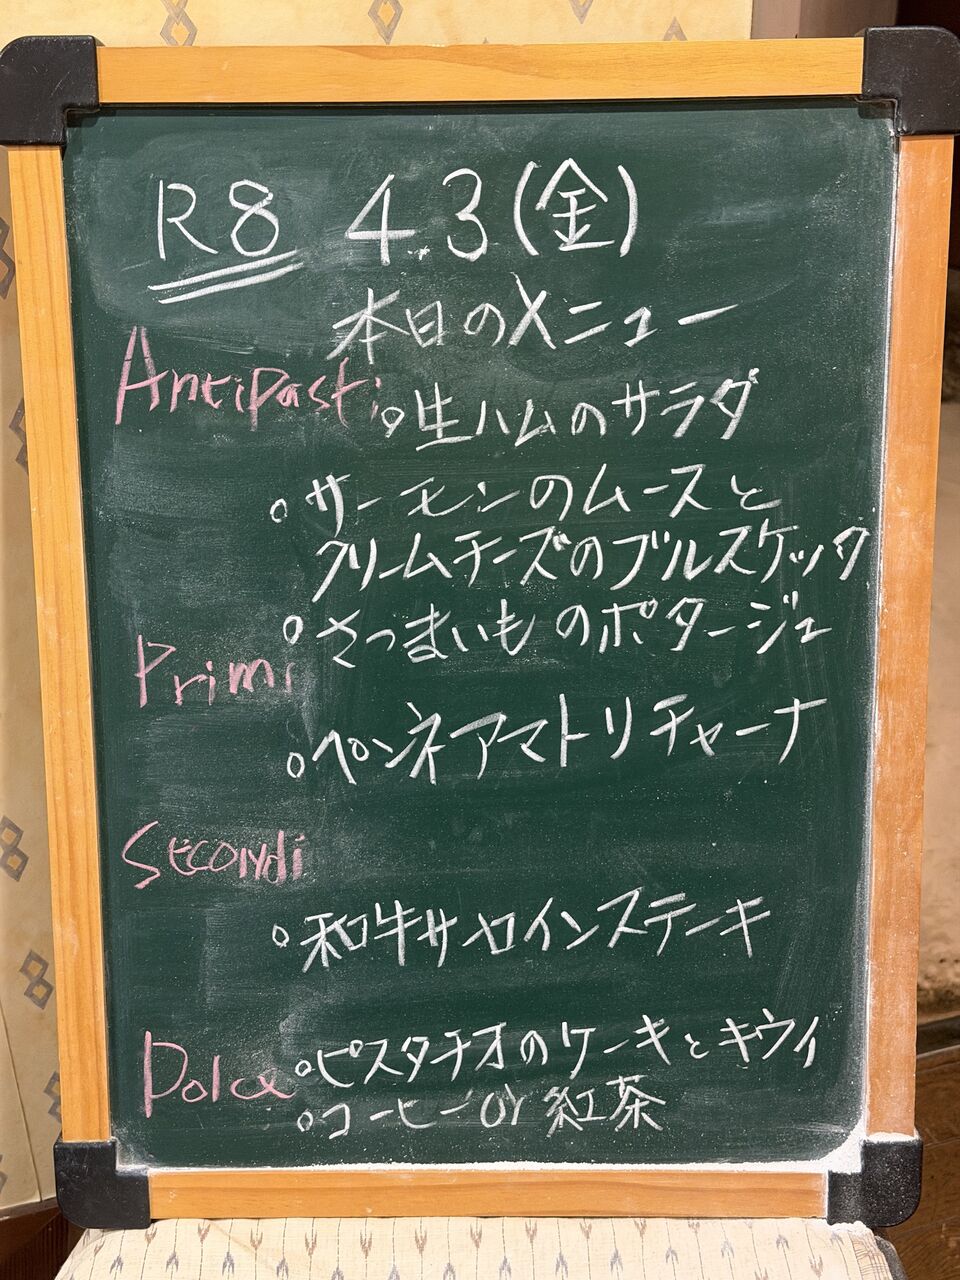 R8 4.3(金)
本日のメニュー
Antipasti
○生ハムのサラダ
○サーモンのムースと
クリームチーズのブルスケッタ
○さつまいものポタージュ
Primi
○ペンネアマトリチャーナ
Secondi
○和牛サーロインステーキ
Dolce
○ピスタチオのケーキとキウイ
○コーヒーor紅茶